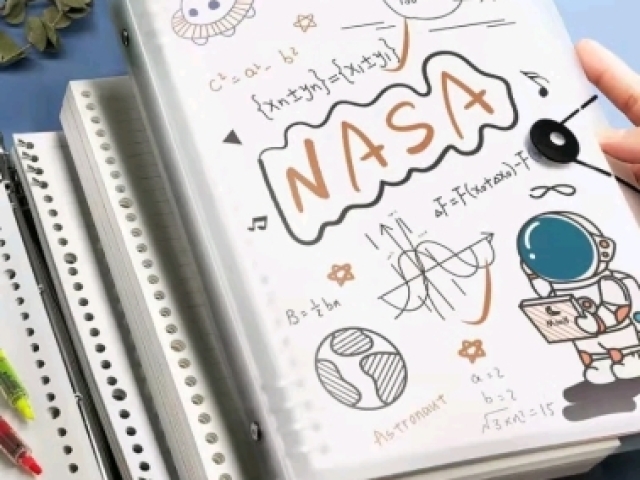 c² = a² - b²
{xn±yn}={x₁±y₁}
NASA
ΔF=F(x₀+Δx₀)-F
B=½bn
a=2
b=2
√3xn²=15
Astronaut